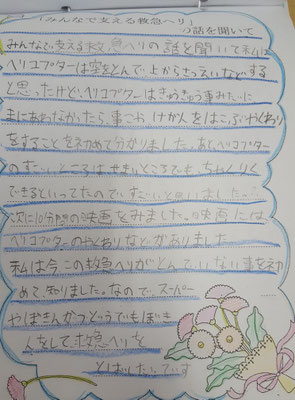 「みんなで支える救急ヘリ」
の話を聞いて
みんなで支える救急ヘリの話を聞いて私は
ヘリコプターは空をとんで、上からさつえいなどする
と思ったけど、ヘリコプターはきゅうきゅう車みたいに
まにあわなかったら、車こわ けがんをはこぶやくわり
をすることを初めて分かりました。あと、ヘリコプター
のすごいところはせまいところでも、ちゃくりく
できるといってたのですごーいと思いました。
次に10分間の映画をみました。映画には、
ヘリコプターのやくわりなどがありました
私は今この救急ヘリがとんでいない事を初
めて、知りました。なので、スーパー
やぼきんかつどうでもぼきも
人をして救急ヘリを
とばしたいです